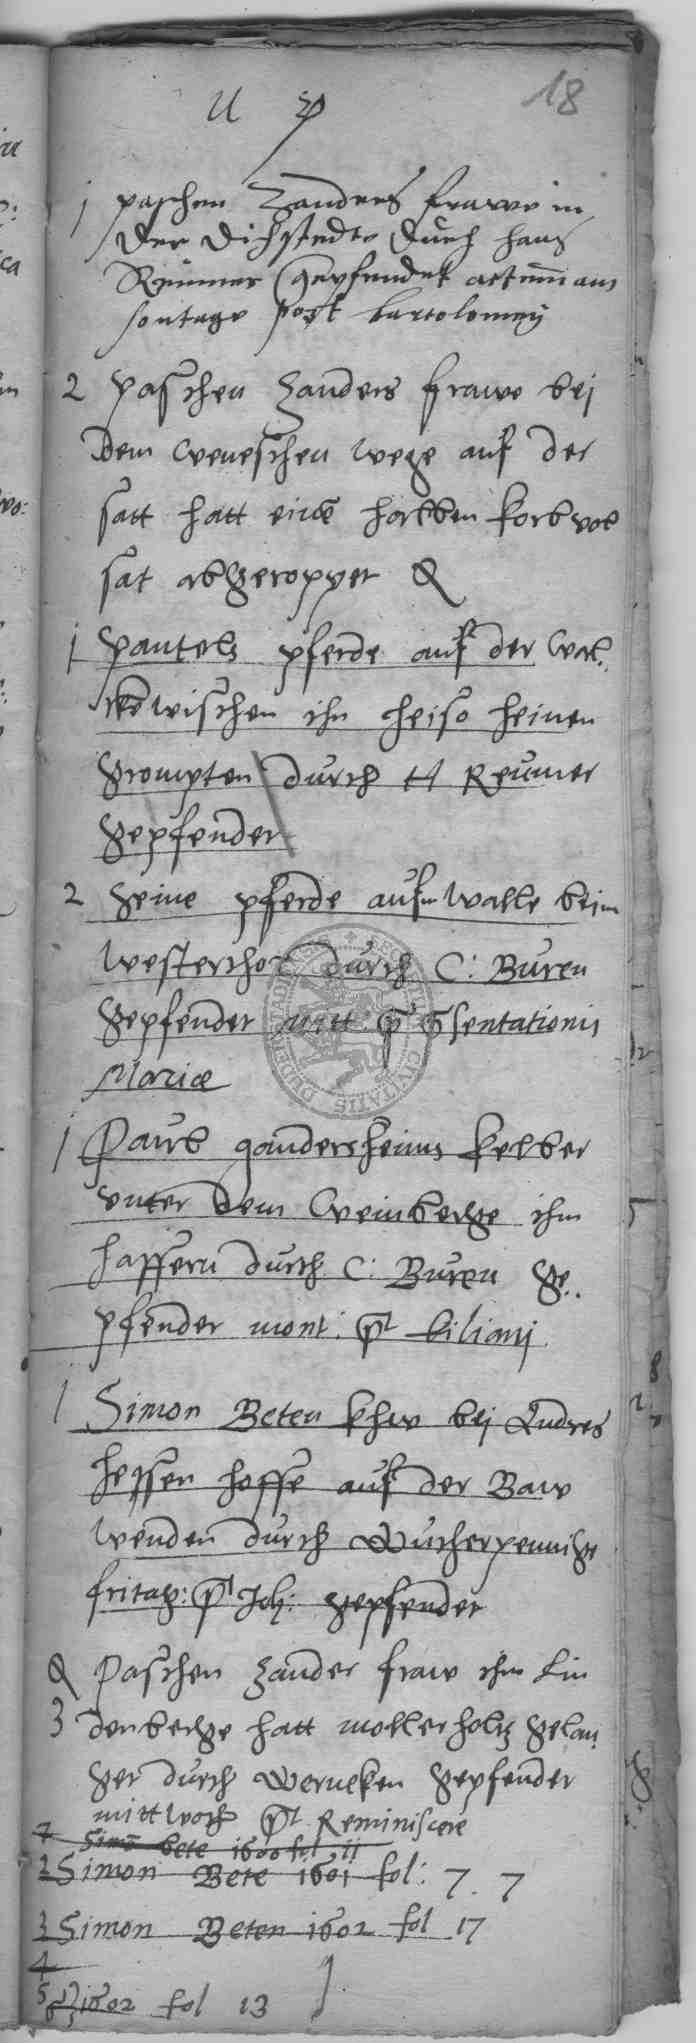 18
1 paschen Zanders frawe in
der dichstedte durch hans
Reumer gepfendet actum am
sontage post bartolomey
2 paschen Zanders frawe bei
dem weneschen wege auf der
satt hatt eine halben korb vol
sat abgeroppet
1 pauwels pferde auf der Wal
durch H Reumer
gepfendet
2 seine pferde aufm Walle beim
Westerthor durch C: Buren
gepfendet mitt: pt psentationis
Mariae
1 Pauwl gandersheims kelber
unter dem Weinberge ihm
haffern durch C: Buren ge
pfendet mont: pt kiliani
1 Simon Beten khw bei Andres
hessen hoffe auf der Baw
wenden durch Wucherpennige
fritag: pt Joh: gepfendet
Paschen Zander fraw ihm Lin
3 denberge hatt woller holtz gelan
get durch Werneken gepfendet
mittwoch pt. Reminiscere
Simon bete 1600 fol 11
2 Simon Bete 1601 fol: 7. 7
3 Simon Beten 1602 fol 17
4
5 1602 fol 13
DUDERSTADIENSIS CIVITATIS